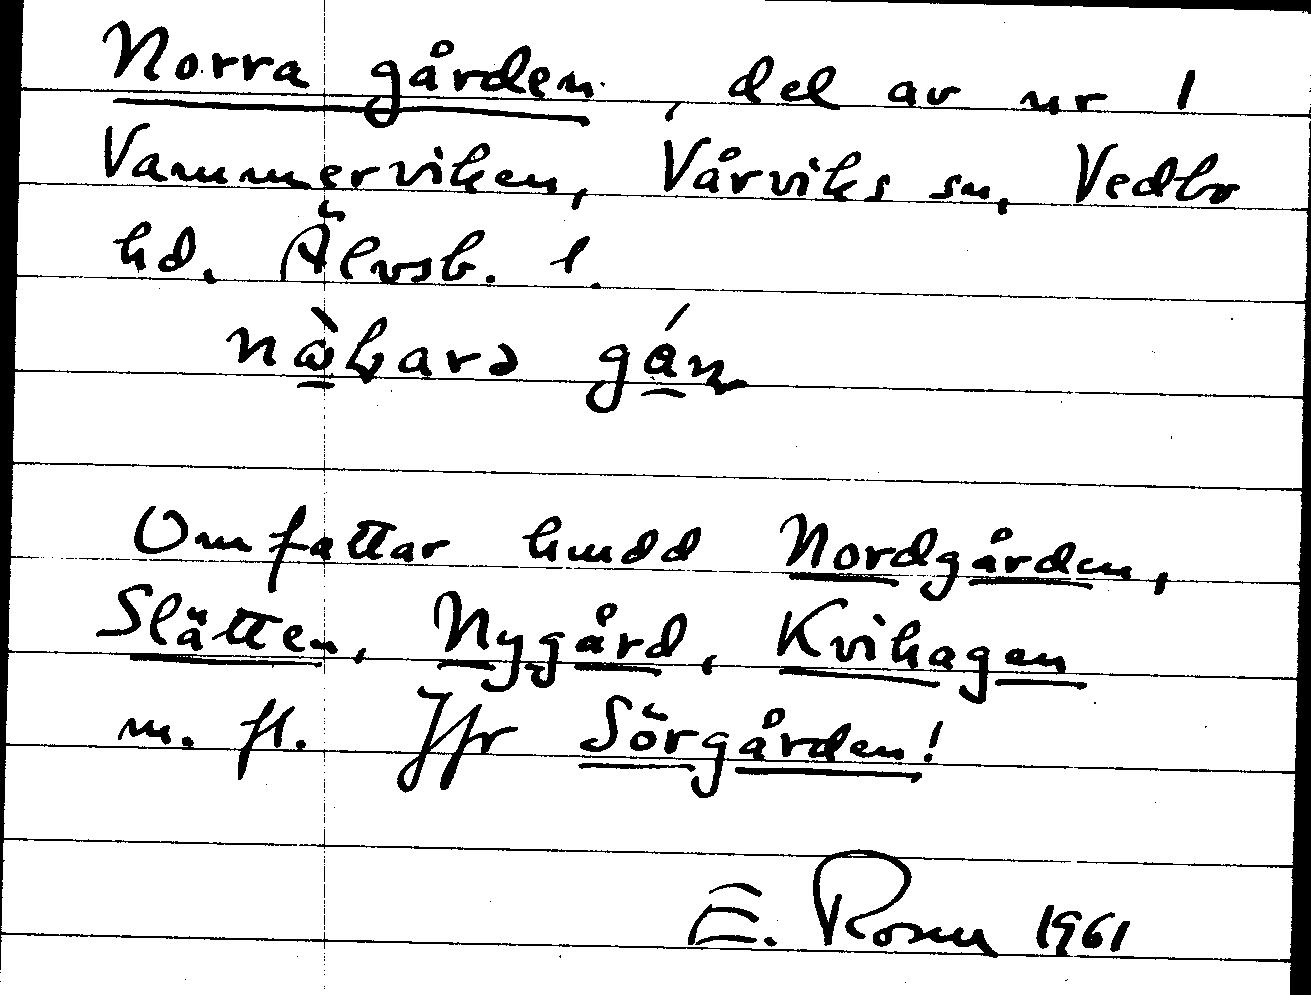 Norra gården, del av nr 1
Vammerviken, Vårviks sn, Vedbo
hd. Älvsb. l.
Omfattar hmdd Nordgården,
Slätten, Nygård, Kvihagen
m. fl. Jfr Sörgården!
E. Rosm 1961